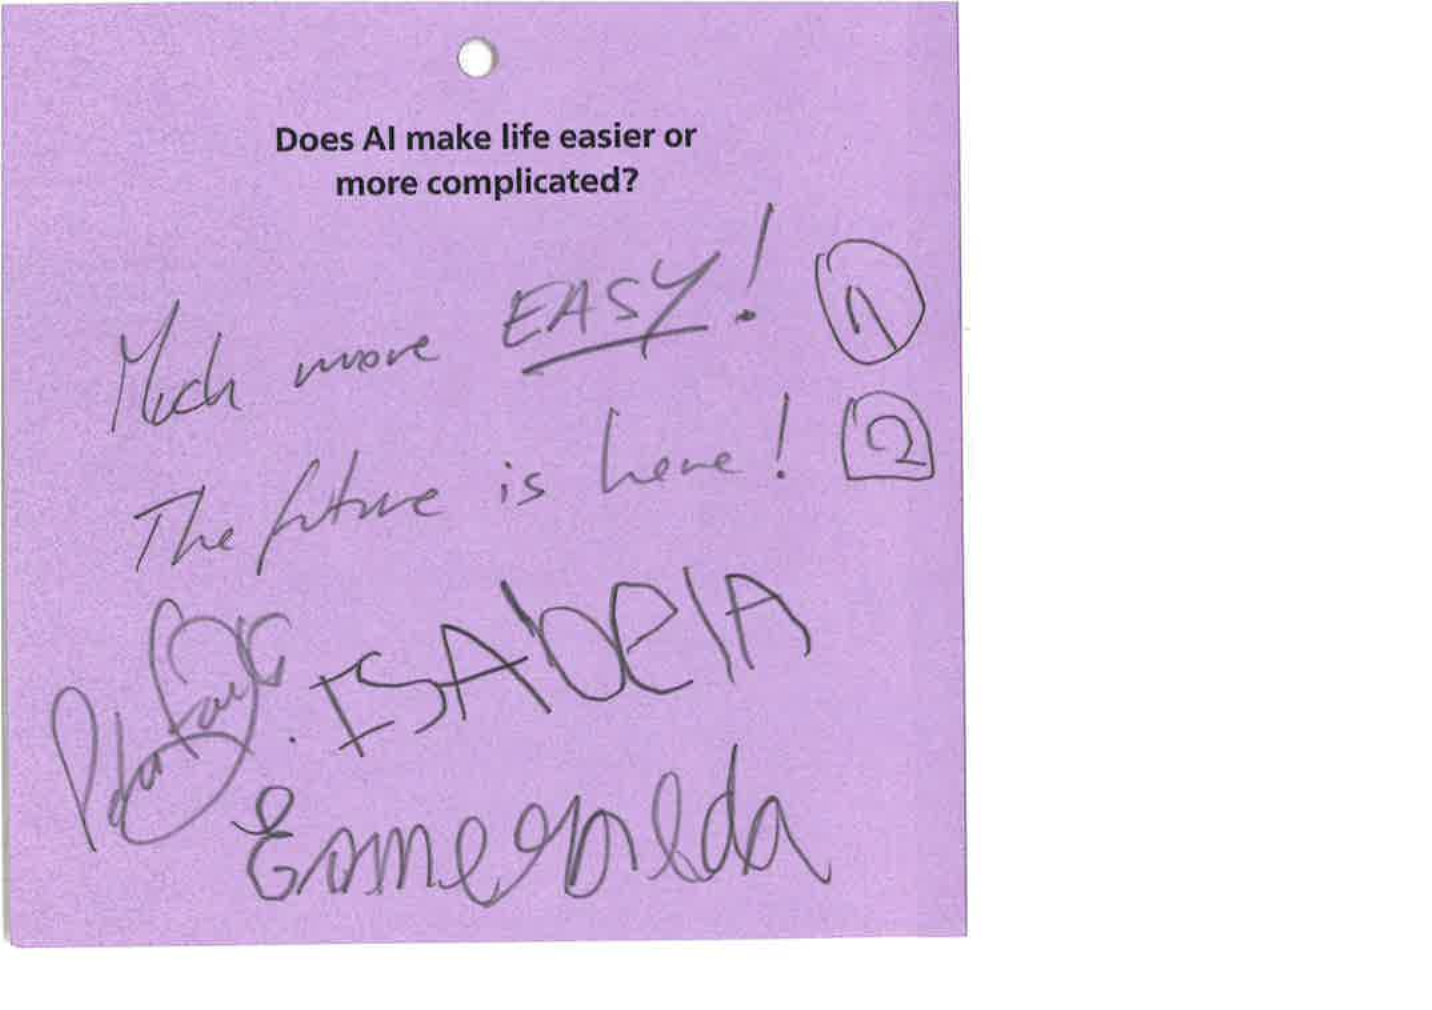 Does AI make life easier or
more complicated?
Much more EASY! 1
The future is here! 2
ISAbelA
Esmeralda